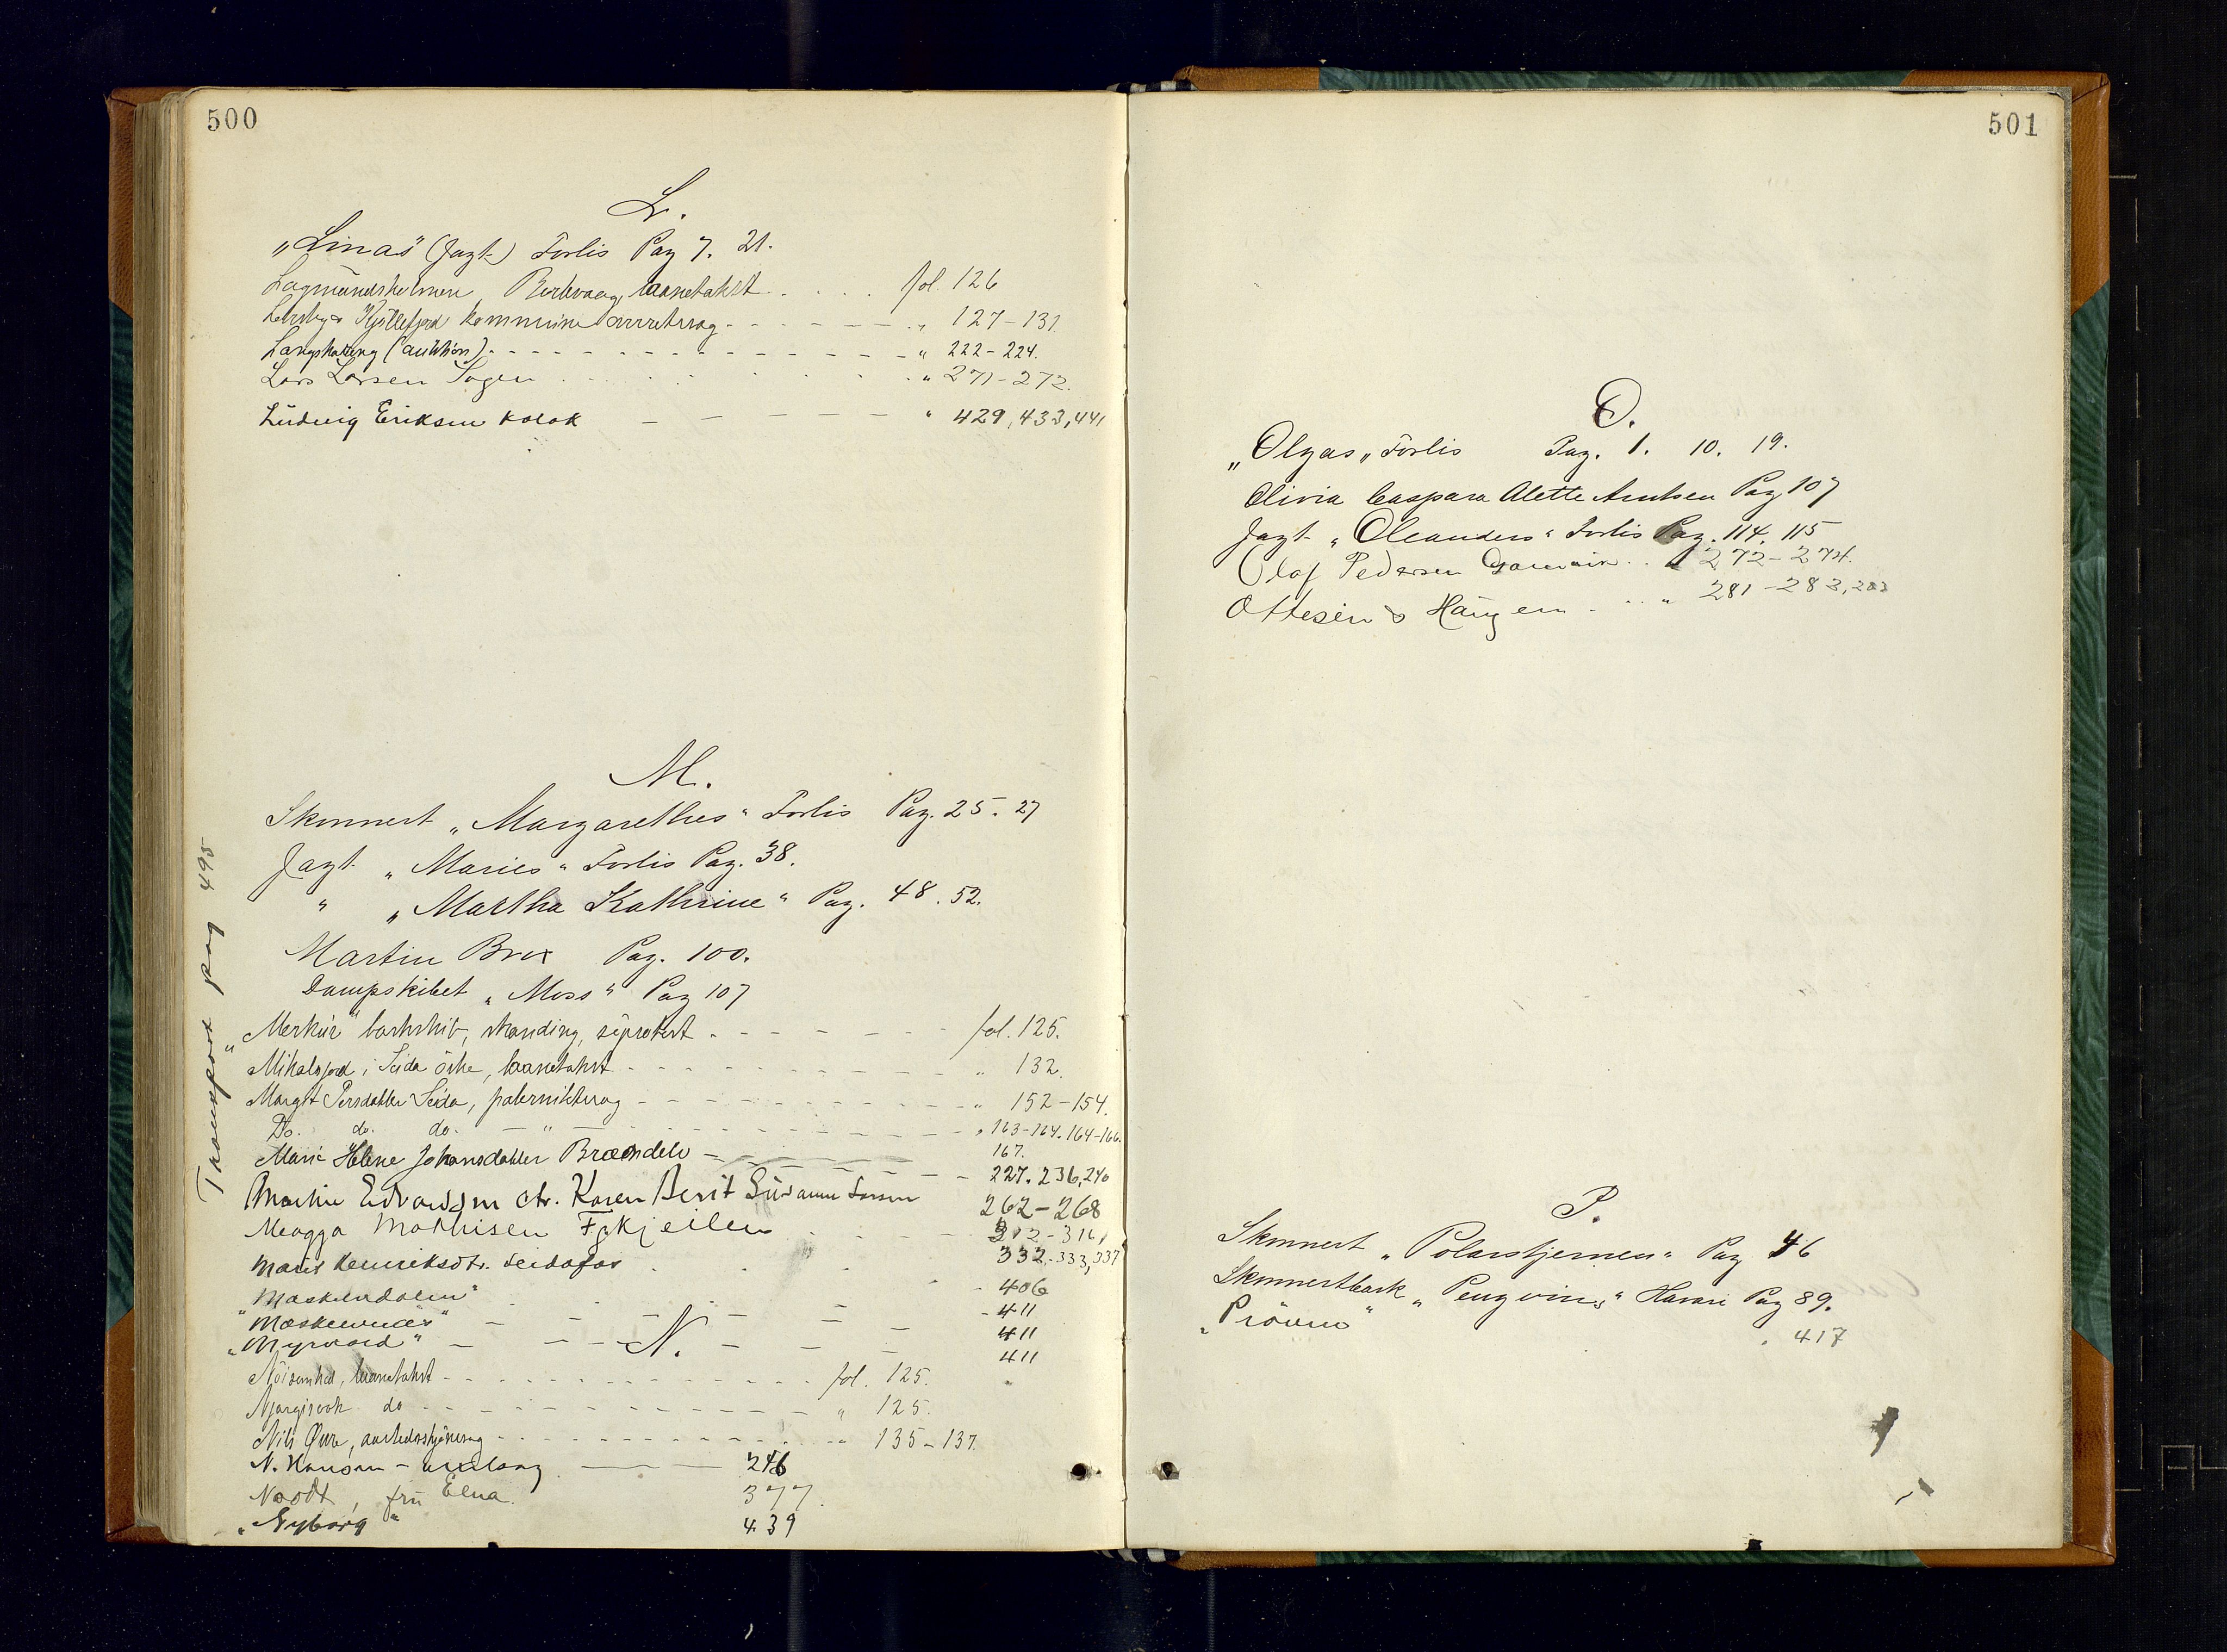 500
L.
„Linas" (Jagt) Forlis Pag 7. 21.
Lagmandsholmen, Berlevaag, laanetakst . . . . fol. 126
Lebesby & Kjöllefjord kommune - - - - - „ 127-131.
(auktion) - - - - - - „ 222-224.
Lars Larsen . . . . „ 271-272.
Ludvig Eriksen Kolok - - - - „ 429, 433, 441
M.
Skonnert „Margarethes" Forlis Pag. 25. 27
Jagt „Maries" Forlis Pag. 38.
" „Martha Kathrine" Pag. 48. 52.
Martin Brox Pag. 100.
Dampskibet „Moss" Pag 107
„Merkur" barkskib, stranding, söprotest - - - - fol. 125.
i Seida östre, laanetakst - - - - „ 132.
Margit Persdatter Seida, paternitetssag - - - - „ 152-154.
Do. do. do. - " - - - - „ 163-164. 164-166.
Marie Helene Johansdatter Brændelv - - - - 167.
- 227. 236, 240
Martin Edvardsen ctr. Karen Berit Susanne Larsen 262-268
Magga Mathisen . . . . 312-316,
Marit Henriksdtr. Seidafos . . . 332-333, 337
"Maskendalen" . . . - 406
"Maskevarres" - - - - - 411
„Myrvard" - - - - - 411
411
N.
Nöisomhed, laanetakst - - - - fol. 125.
do - - - - „ 125.
Nils Øwre, - - - - „ 135-137.
N. Hansen - 246
Noodt, fru Elna. 377.
„Nyborg" 439
Transport pag 495
501
O.
„Olgas" Forlis Pag. 1. 10. 19.
Olivia Caspara Alette Arntsen Pag 107
Jagt „Oleanders" Forlis Pag. 114. 115
Olaf Pedersen . . „ 272-274.
Ottesen & Haugen . . . „ 281-283, 283
P.
Skonnert „Polarstjernen" Pag 46
Skonnertbark „Pengvins" Havari Pag 89.
„Pröven" . 417